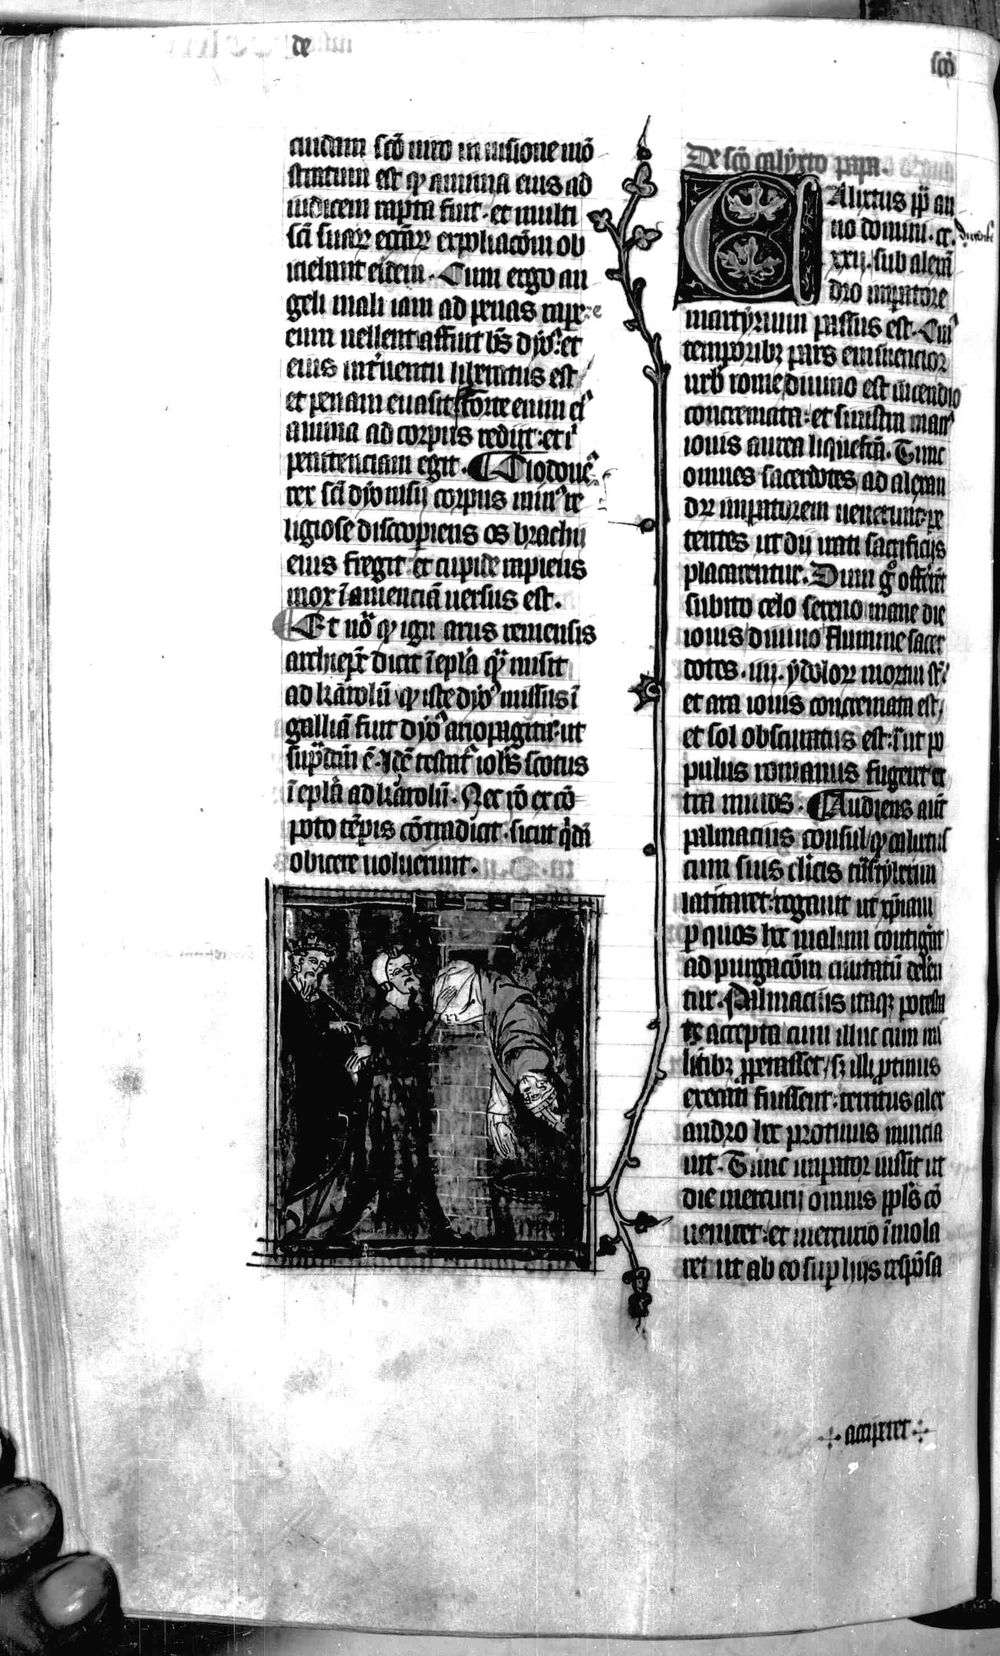 de
scō
cuidam scō uiro in uisione mō
stratum est qꝫ anima eius ad
iudicem rapta fuit · et multi
scī suaꝝ eccīaꝝ expoliacōm ob
iciebant eidem · Cum ergo an
geli mali iam ad penas rape
eum uellent affuit b̄s dyoꝰ · et
eius int̓uentu liberatus est
et penam euasit forte enim eiꝰ
anima ad corpus redijt · et ī
penitenciam egit · Clodoueꝰ
rex scī dyonisij corpus minꝰ re
ligiose discoperiens os brachij
eius fregit et cupide rapiens
mox ī amenciā uersus est ·
Et nō qꝫ ignarus remensis
archiep̄c dicit ī epla quā misit
ad karolū qꝫ iste dyoꝰ missus ī
galliā fuit dyoꝰ ariopagita · ut
sup̄dc̄m ē · Idē testat̓ ioh̄s scotus
ī epla ad karolū · Nec iō ex cō
poto tēpis cōtradicit · sicut qͥdā
obicere uoluerunt ·
De scō calixto papa ·
Calixtus pp̄ an
no domini · cc ·
xxii · sub alexā
dro impatore
martyrium passus est · Cuiꝰ
temporibꝫ pars eminencior
urb̓ rome diuino est incendio
concremata · et sinistra manꝰ
iouis aurea liquefc̄a · Tunc
omnes sacerdotes ad alexan
drꝝ impatorem uenerunt · pe
tentes ut dij irati sacrificijs
placarentur · Dum gͦ offerēt
subito celo sereno mane die
iouis diuino flumine sacer
dotes · iiii · ydoloꝝ mortui sūt
et ara iouis concremata est
et sol obscuratus est · sic̄ ut po
pulus romanus fugeret ex
tra muros · Audiens aut̄
palmacius consul qꝫ calixtus
cum suis clīcis tn̄styberim
latitaret · rogauit ut xp̄iani
p quos hec malum contigit
ad purgacōm ciuitatū delen
tur · Palmacius itaqꝫ potesta
te accepta cum illuc cum mi
litibꝫ pperasset / sꝫ illi ptinus
excecati fuissent · territus alex
andro hec protinus nuncia
uit · Tunc impator iussit ut
die mercurij omnis ppl̄s cō
ueniret · et mercurio īmola
ret ut ab eo sup hijs respōsa
· acciperet ·